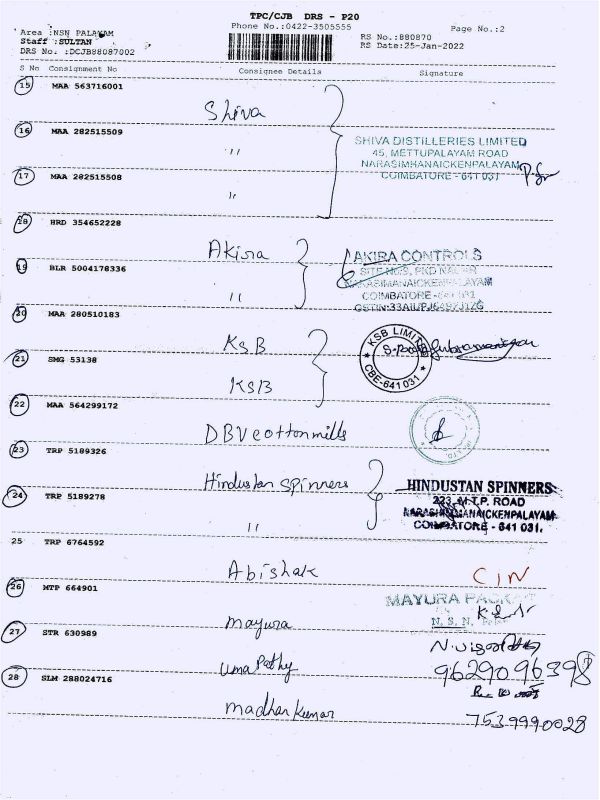 TPC/CJB DRS - P20
Phone No.:0422-3505555
Page No.:2
Area :NSN PALAYAM
Staff :SULTAN
DRS No. :DCJB88087002
RS No.:880870
RS Date:25-Jan-2022
S No Consignment No Consignee Details Signature
15 MAA 563716001
Shiva
16 MAA 282515509
"
SHIVA DISTILLERIES LIMITED
45, METTUPALAYAM ROAD
NARASIMHANAICKENPALAYAM
COIMBATORE - 641 031
17 MAA 282515508
"
18 HRD 354652228
Akira
AKIRA CONTROLS
19 BLR 5004178336
"
COIMBATORE
20 MAA 280510183
KSB
KSB LIMITED
CBE-641 031
21 SMG 53138
KSB
22 MAA 564299172
DBV cotton mills
23 TRP 5189326
Hindustan Spinners
HINDUSTAN SPINNERS
223, M.T.P. ROAD
NARASIMMANAICKENPALAYAM
COIMBATORE - 641 031.
24 TRP 5189278
"
25 TRP 6764592
Abishak
CIN
26 MTP 664901
MAYURA
N. S. N.
mayura
27 STR 630989
Umapathy
9629096398
28 SLM 288024716
madhankumar
7539990028